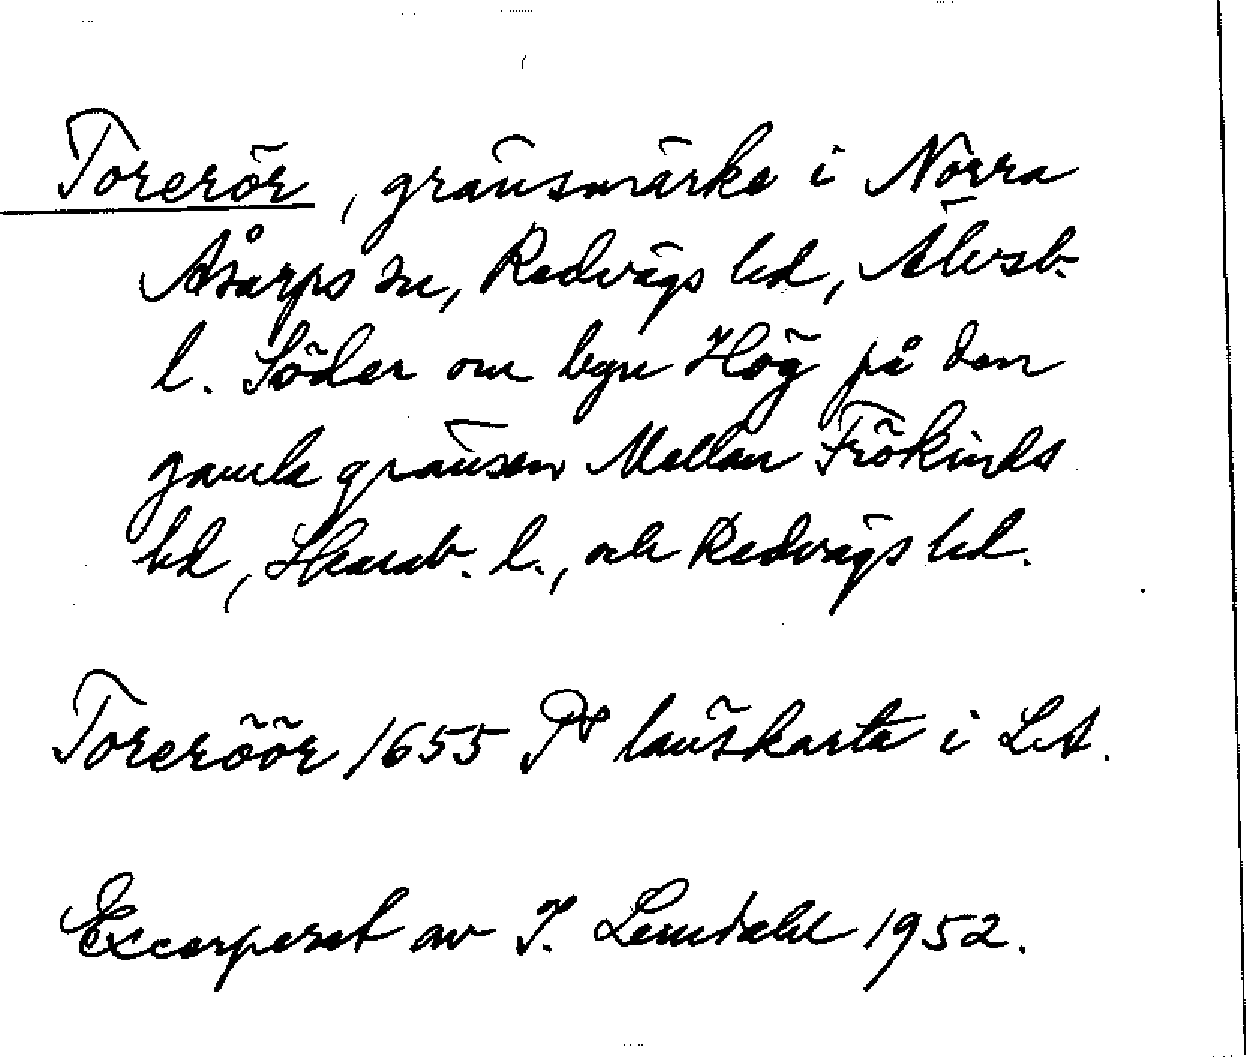 Torerör, gränsmärke i Norra
Åsarps sn, Redvägs hd, Älvsb.
l. Söder om byn Hög på den
gamla gränsen Mellan Frökinds
hd, Skarab. l., och Redvägs hd.
Toreröör 1655 På länskarta i LA.
Excerperat av I. Lundahl 1952.